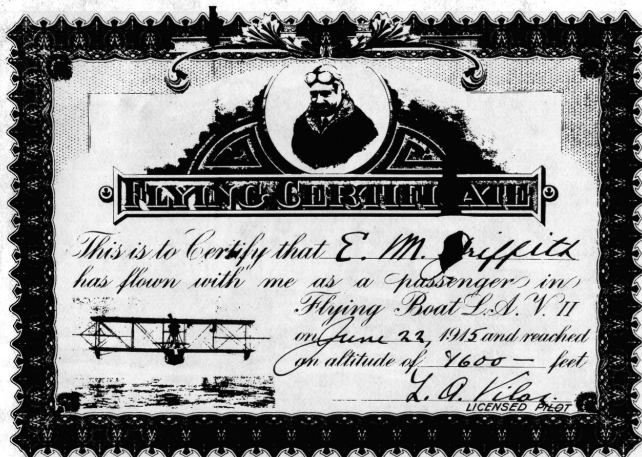 FLYING CERTIFICATE
This is to Certify that E. M. Griffith
has flown with me as a passenger in
Flying Boat L.A.V. II
on June 22, 1915 and reached
an altitude of feet
L. A. Vilas
LICENSED PILOT